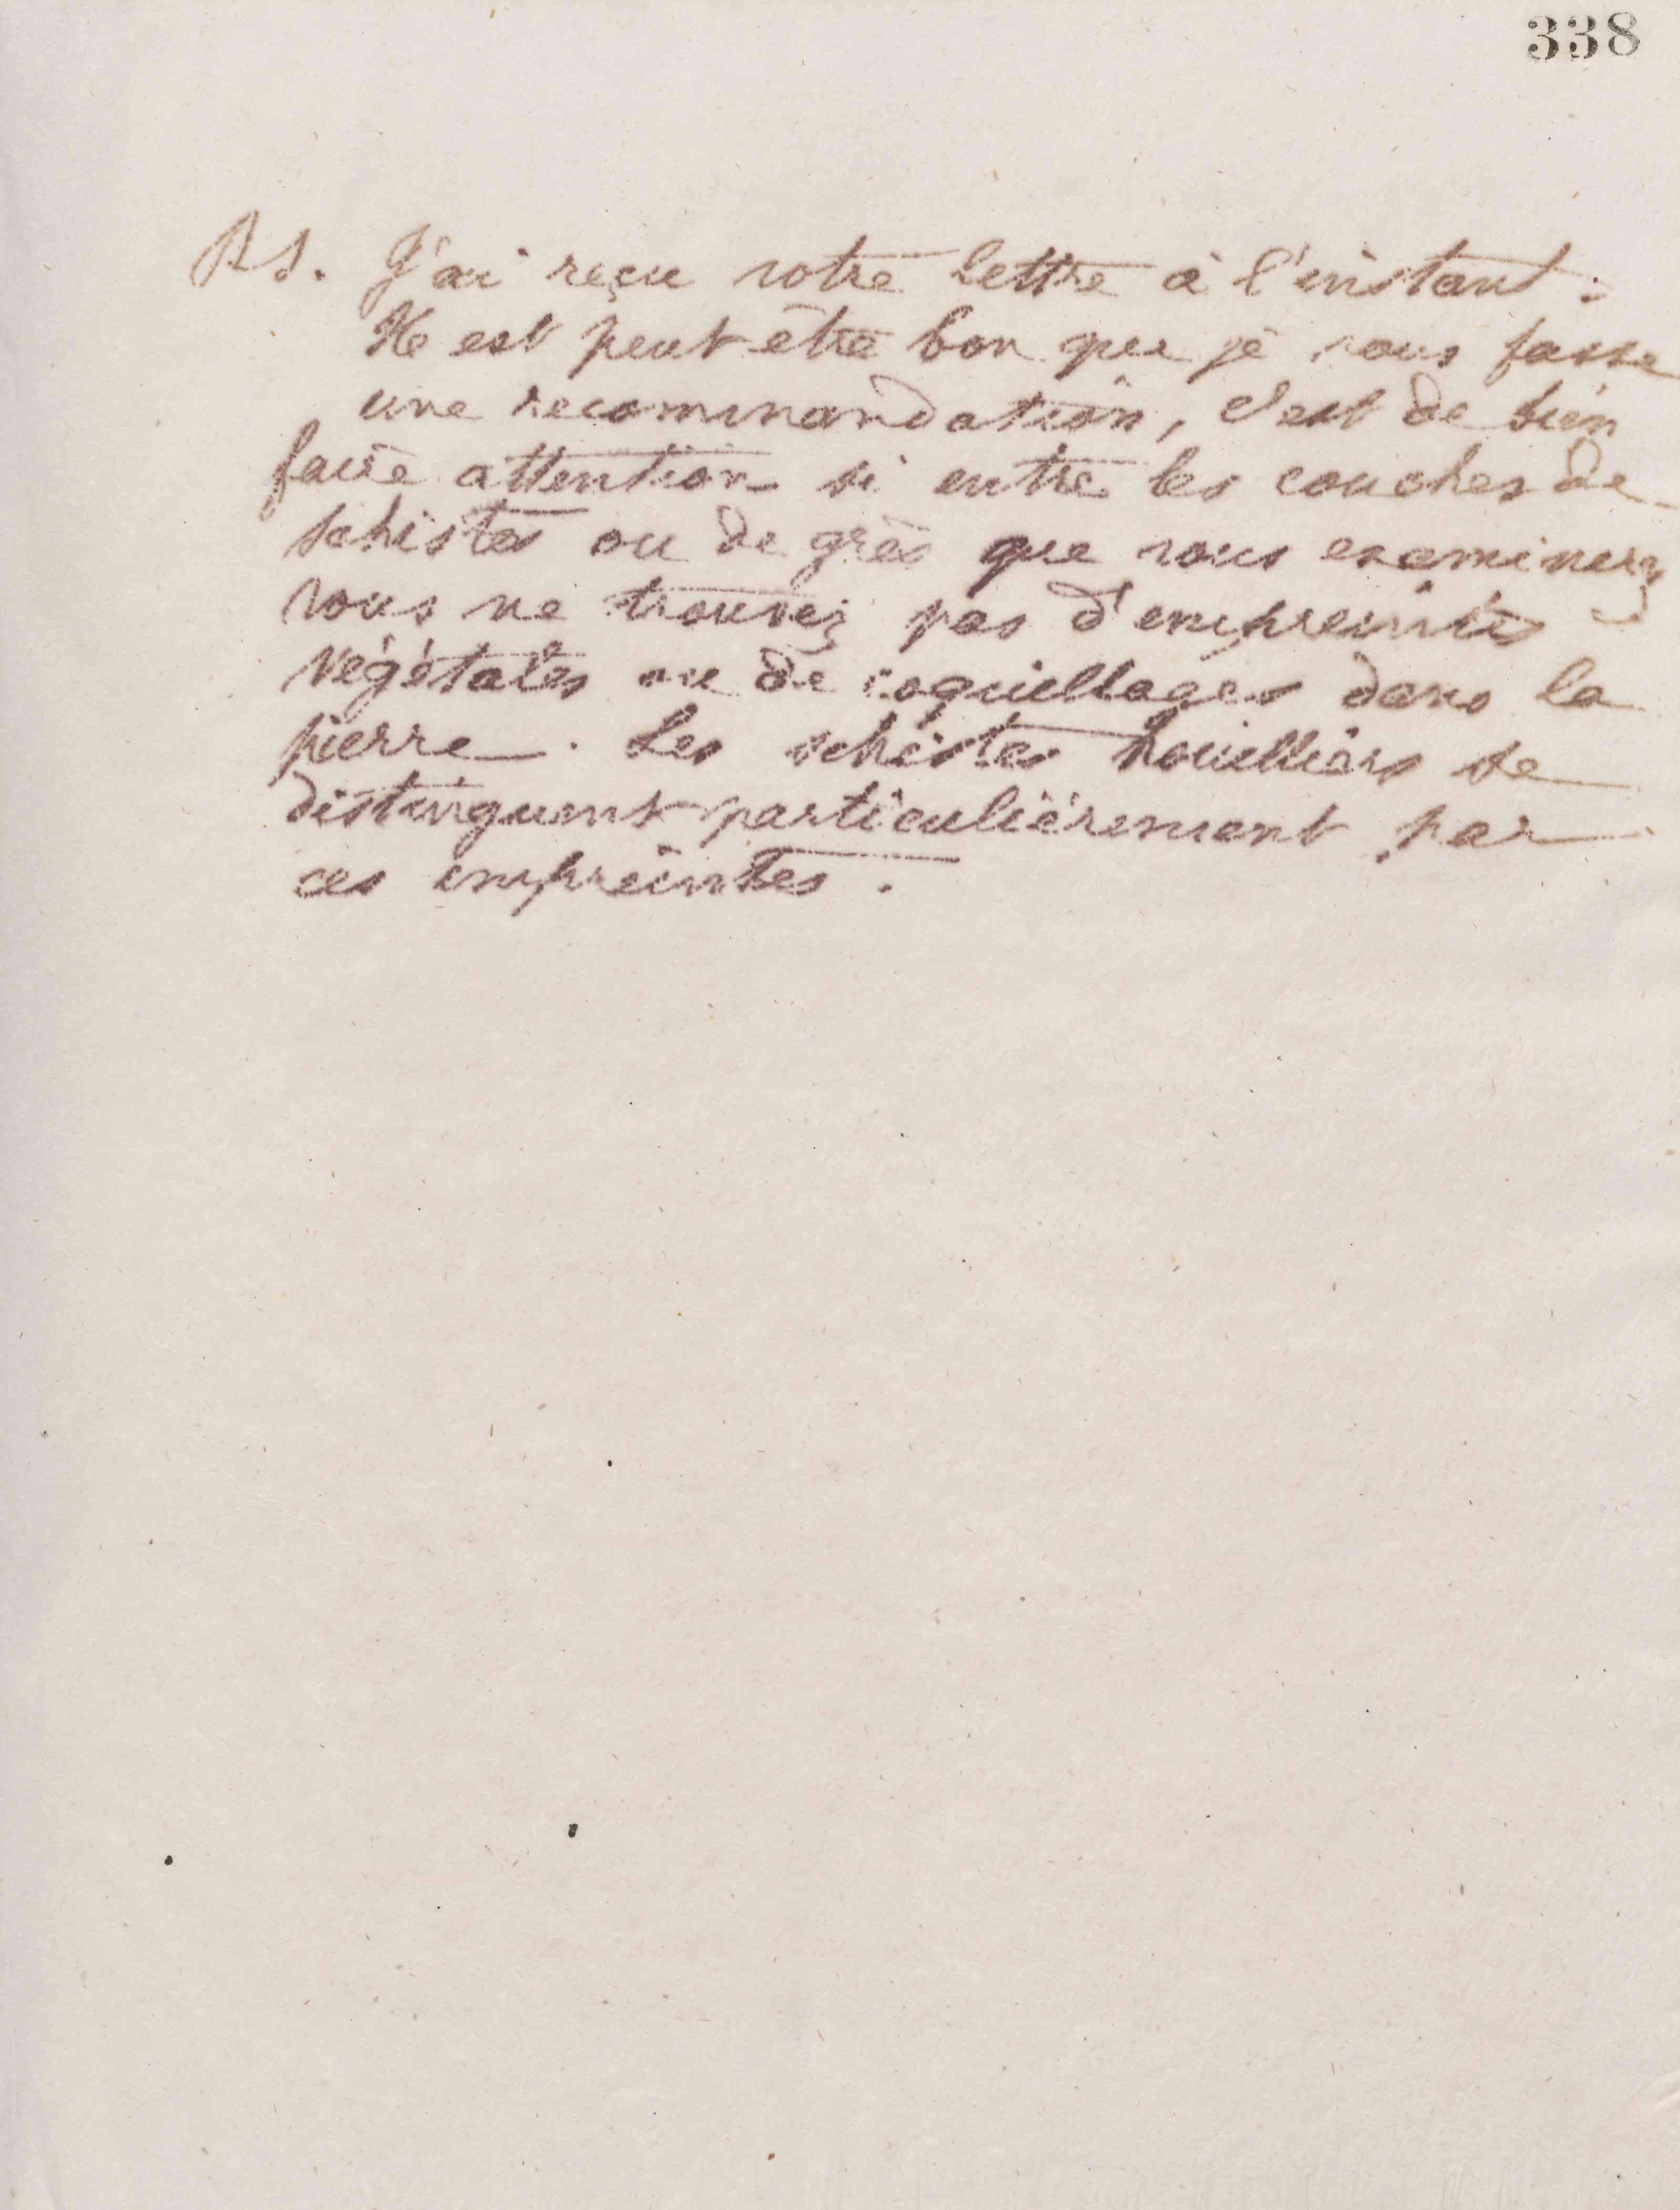 338
PS. J'ai reçu votre lettre à l'instant.
Il est peut être bon que je vous fasse
une recommandation, c'est de bien
faire attention si entre les couches de
schistes ou de grès que vous examinerez
vous ne trouvez pas d'empreintes
végétales ou de coquillages dans la
pierre. Les schistes houilliers se
distinguent particulièrement par
ces empreintes.